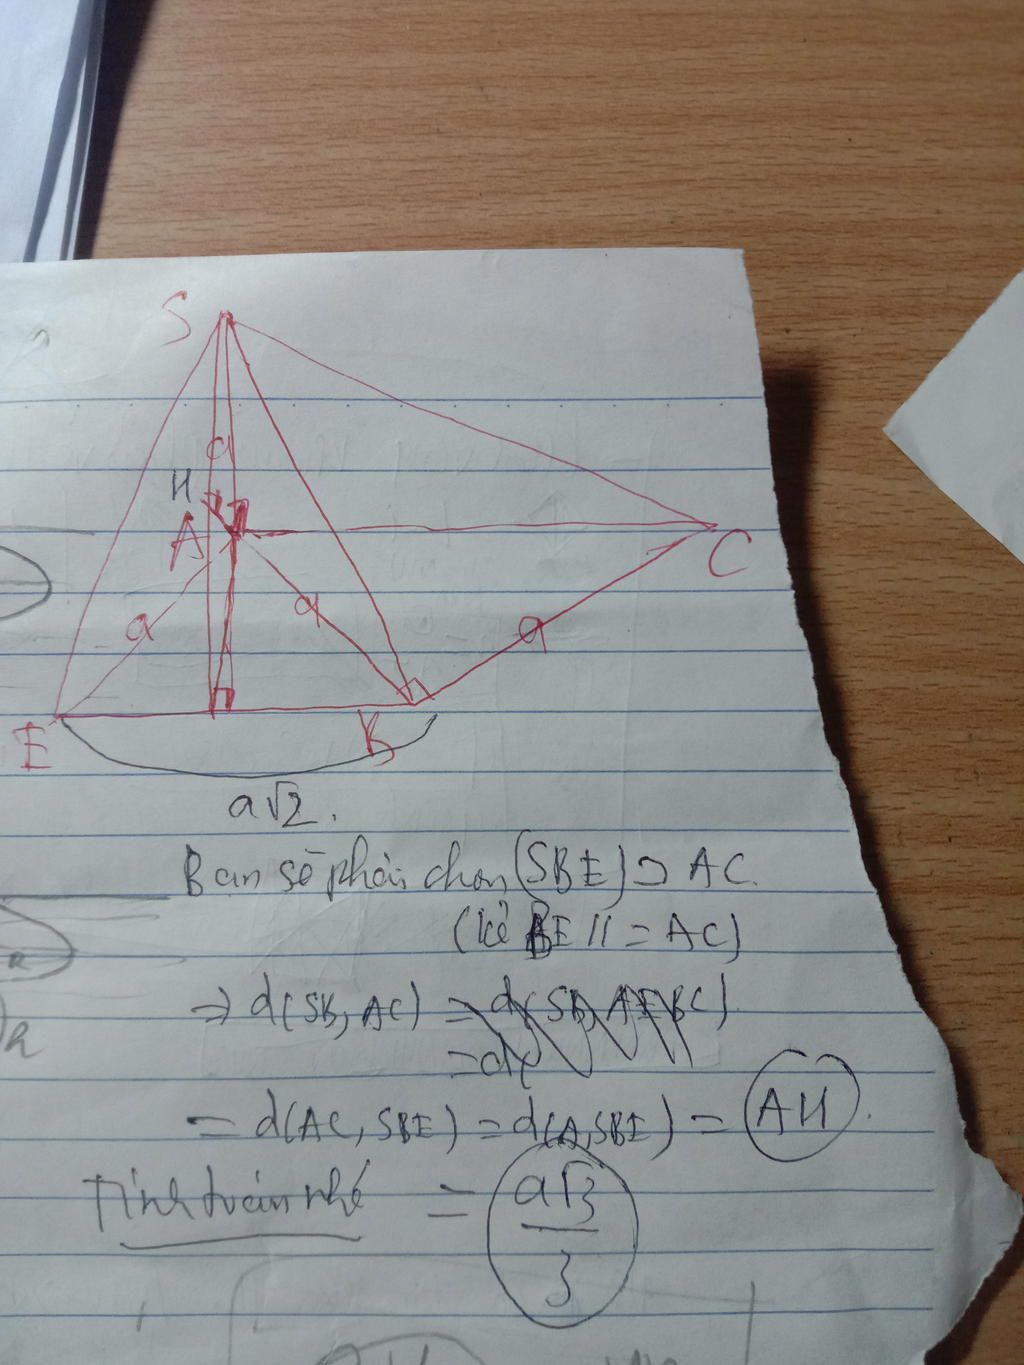 S
a
H
A
C
a
a
a
E
B
a√2.
Bạn sẽ phải chọn (SBE) ⊃ AC.
(kẻ BE // = AC)
⇒ d(SB, AC) = d(SB, AEBC)
= d(
= d(AC, SBE) = d(A, SBE) = AH.
Tính toán nhé = a√3
3